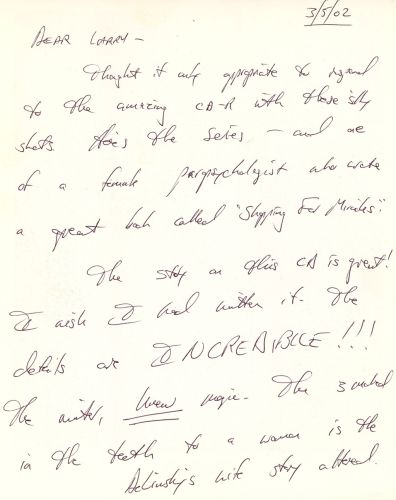 3/5/02
DEAR LARRY -
Thought it only appropriate to respond
to the amazing CD-R with those silly
shots. Here's the series - and one
of a female parapsychologist who wrote
a great book called "Shopping For Miracles".
The story on this CD is great!
I wish I had written it. The
details are INCREDIBLE!!!
The writer, knew magic. The 3
in the teeth to a woman is the
wife story altered.